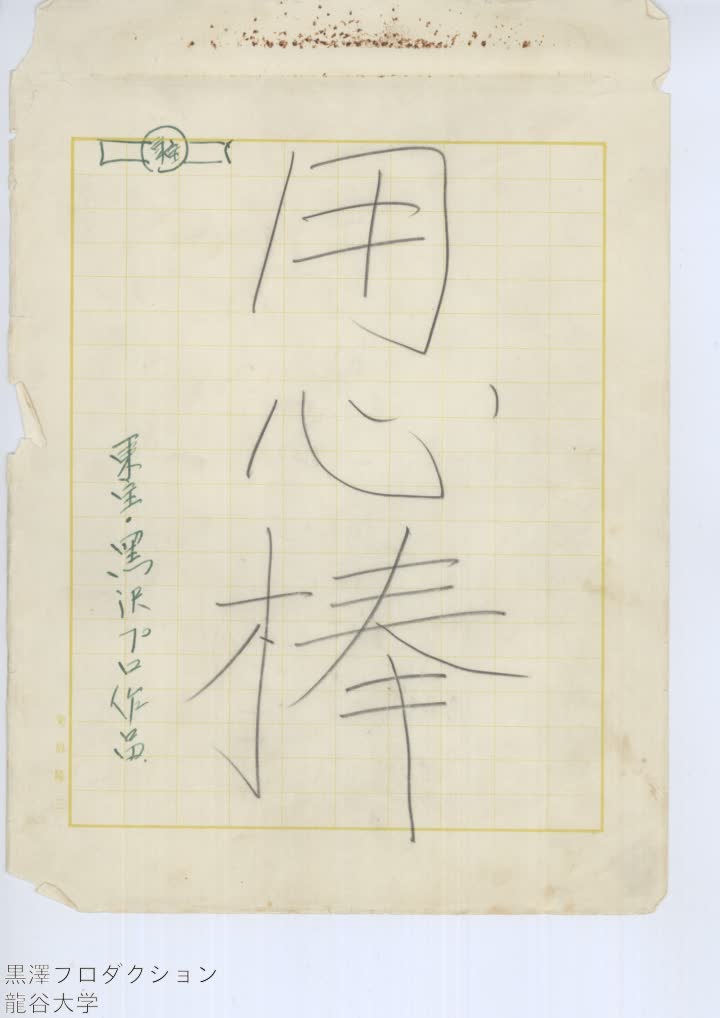 用心棒
東宝
東宝・黒沢プロ作品
黒澤フロダクション
龍谷大学